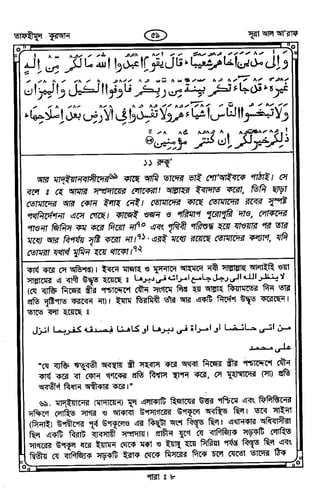 তাফহীমুল কুরআন
৫৯
সূরা আল আ'রাফ
وَإِلَىٰ مَدْيَنَ أَخَاهُمْ شُعَيْبًا قَالَ يٰقَوْمِ اعْبُدُوا اللَّهَ مَا لَكُمْ مِّنْ إِلٰهٍ
غَيْرُهُ قَدْ جَاءَتْكُمْ بَيِّنَةٌ مِّنْ رَّبِّكُمْ فَأَوْفُوا الْكَيْلَ وَالْمِيزَانَ
وَلَا تَبْخَسُوا النَّاسَ أَشْيَاءَهُمْ وَلَا تُفْسِدُوا فِي الْأَرْضِ بَعْدَ إِصْلَاحِهَا
ذٰلِكُمْ خَيْرٌ لَّكُمْ إِنْ كُنْتُمْ مُّؤْمِنِينَ
১১ রুকু'
আর মাদ্ইয়ানবাসীদের৬৯ কাছে আমি তাদের ভাই শো'আইবকে পাঠাই। সে
বলে : হে আমার সম্প্রদায়ের লোকেরা! আল্লাহর ইবাদাত করো, তিনি ছাড়া
তোমাদের আর কোন ইলাহ নেই। তোমাদের কাছে তোমাদের রবের সুস্পষ্ট
পথনির্দেশনা এসে গেছে। কাজেই ওজন ও পরিমাপ পুরোপুরি দাও, লোকদের
পাওনা জিনিস কম করে দিয়ো না৭০ এবং পৃথিবী পরিশুদ্ধ হয়ে যাওয়ার পর তার
মধ্যে আর বিপর্যয় সৃষ্টি করো না।৭১ এরই মধ্যে রয়েছে তোমাদের কল্যাণ, যদি
তোমরা যথার্থ মুমিন হয়ে থাকো।৭২
কার্য করে সে অভিশপ্ত। ইবনে মাজাহ ও মুসনাদে আহমদে নবী সাল্লাল্লাহু আলাইহি ওয়া
সাল্লামের এ বাণী উদ্ধৃত হয়েছে : لا ينظر الله الى رجل جامع امراته فى دبرها
(যে ব্যক্তি নিজের স্ত্রীর পশ্চাদ্দেশে যৌন সংগমে লিপ্ত হয় আল্লাহ কিয়ামতের দিন তার
প্রতি দৃষ্টিপাত করবেন না)। ইমাম তিরমিযী তাঁর আর একটি নির্দেশ উদ্ধৃত করেছেন।
তাতে বলা হয়েছে :
من اتى حائضا او امراة فى دبرها او كاهنا فصدقه فقد كفر بما انزل
على محمد
"যে ব্যক্তি ঋতুবতী অবস্থায় স্ত্রী সহবাস করে অথবা নিজের স্ত্রীর পশ্চাদ্দেশে যৌন
কার্য করে বা কোন গণকের প্রতি বিশ্বাস স্থাপন করে, সে মুহাম্মাদের (সা) প্রতি
অবতীর্ণ বিধান অস্বীকার করে।"
৬৯. মাদ্ইয়ানের (মাদায়েন) মূল এলাকাটি হিজাযের উত্তর পশ্চিমে এবং ফিলিস্তিনের
দক্ষিণে লোহিত সাগর ও আকাবা উপসাগরের উপকূলে অবস্থিত ছিল। তবে সাইনা
(সিনাই) উপদ্বীপের পূর্ব উপকূলেও এর কিছুটা অংশ বিস্তৃত ছিল। এখানকার অধিবাসীরা
ছিল একটি বিরাট ব্যবসায়ী সম্প্রদায়। প্রাচীন যুগে যে বাণিজ্যিক সড়কটি লোহিত
সাগরের উপকূল ধরে ইয়ামান থেকে মক্কা ও ইয়াম্বু হয়ে সিরিয়া পর্যন্ত বিস্তৃত ছিল এবং
দ্বিতীয় যে বাণিজ্যিক সড়কটি ইরাক থেকে মিসরের দিকে চলে যেতো তাদের ঠিক
পারা : ৮